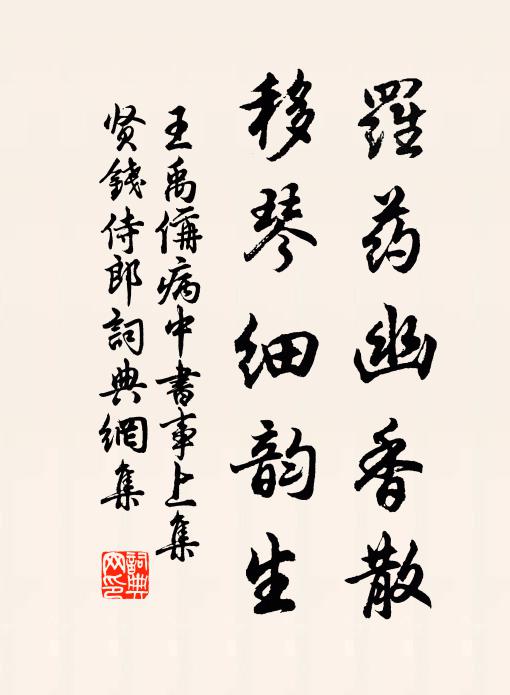 羅药幽香散
移琴细韵生
王禹偁病中書事上集
贤錢侍郎詞典網集
詞典